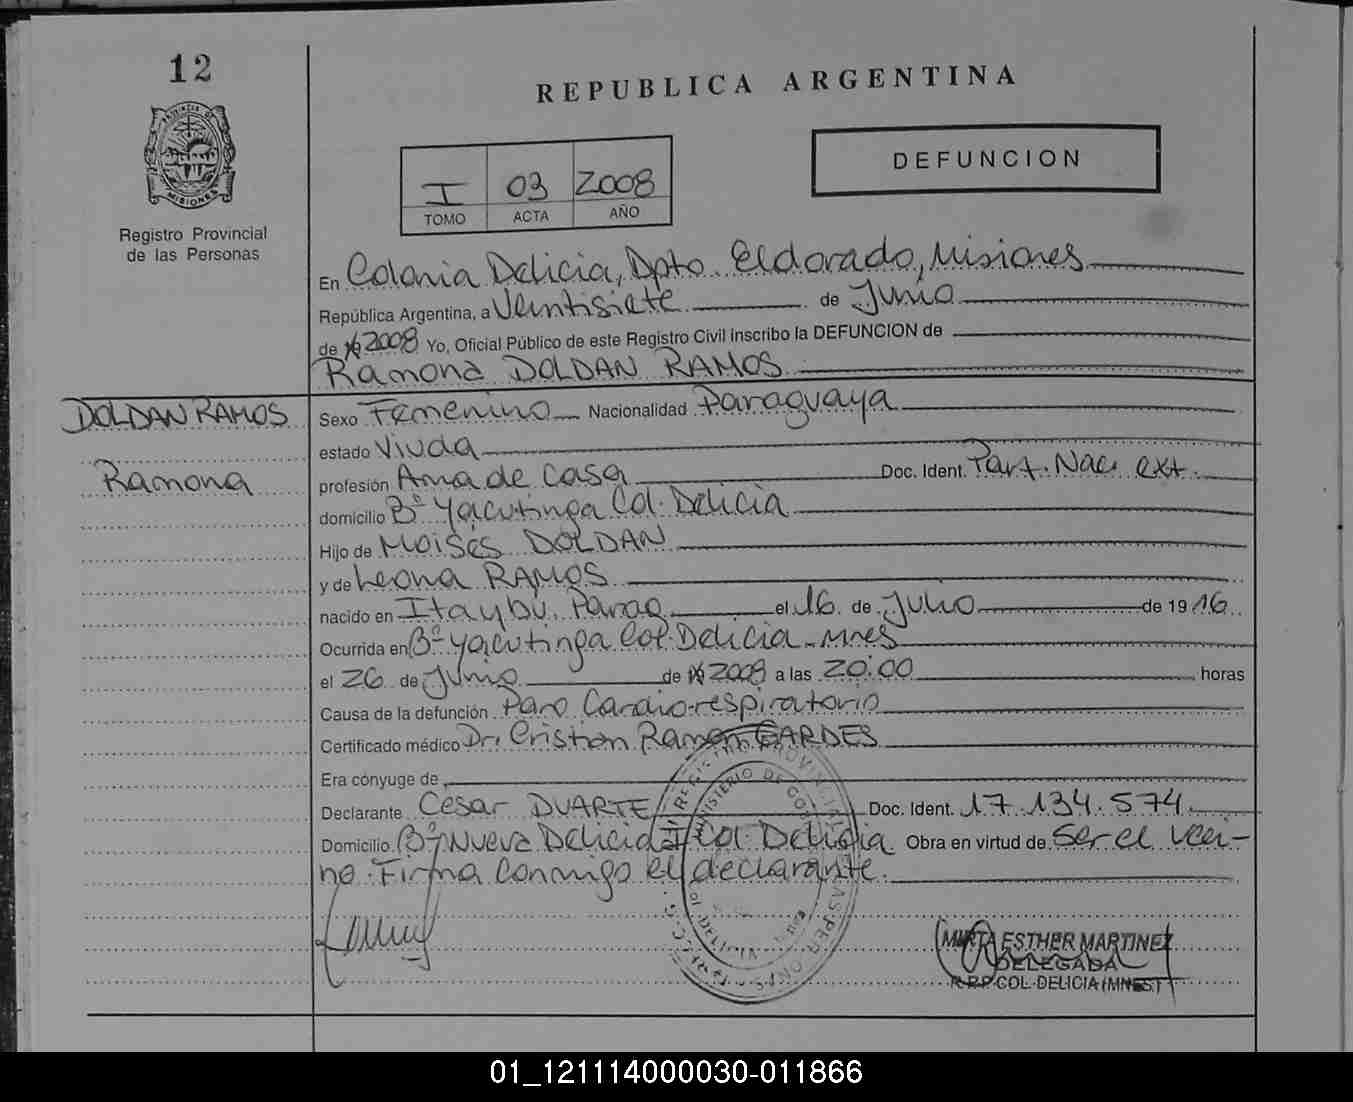 12
REPUBLICA ARGENTINA
PROVINCIA DE
MISIONES
Registro Provincial
de las Personas
I 03 2008
TOMO ACTA AÑO
DEFUNCION
En Colonia Delicia, Dpto. Eldorado, Misiones
República Argentina, a Veintisiete de Junio
de 19 2008 Yo, Oficial Público de este Registro Civil inscribo la DEFUNCION de
Ramona DOLDAN RAMOS
DOLDAN RAMOS
Ramona
Sexo Femenino Nacionalidad Paraguaya
estado Viuda
profesión Ama de casa Doc. Ident. Part. Nac. ext.
domicilio Bº Yacutinga Col. Delicia
Hijo de Moisés DOLDAN
y de Leona RAMOS
nacido en Itaybú, Parag. el 16 de Julio de 1916
Ocurrida en Bº Yacutinga Col. Delicia - Mnes
el 26 de Junio de 19 2008 a las 20:00 horas
Causa de la defunción Paro Cardio-respiratorio
Certificado médico Dr. Cristian Ramón GARDES
Era cónyuge de
Declarante Cesar DUARTE Doc. Ident. 17.134.574
Domicilio Bº Nueva Delicia I Col. Delicia Obra en virtud de Ser el veci-
no. Firma conmigo el declarante.
MIRTA ESTHER MARTINEZ
DELEGADA
R.P.P. COL. DELICIA (MNES.)
01_121114000030-011866